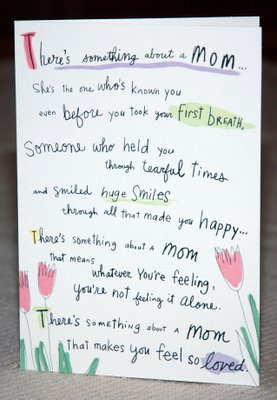 There's something about a Mom...
She's the one who's known you
even before you took your first breath,
Someone who held you
through tearful times
and smiled huge smiles
through all that made you happy...
There's something about a Mom
that means
whatever you're feeling,
you're not feeling it alone.
There's something about a Mom
that makes you feel so loved.